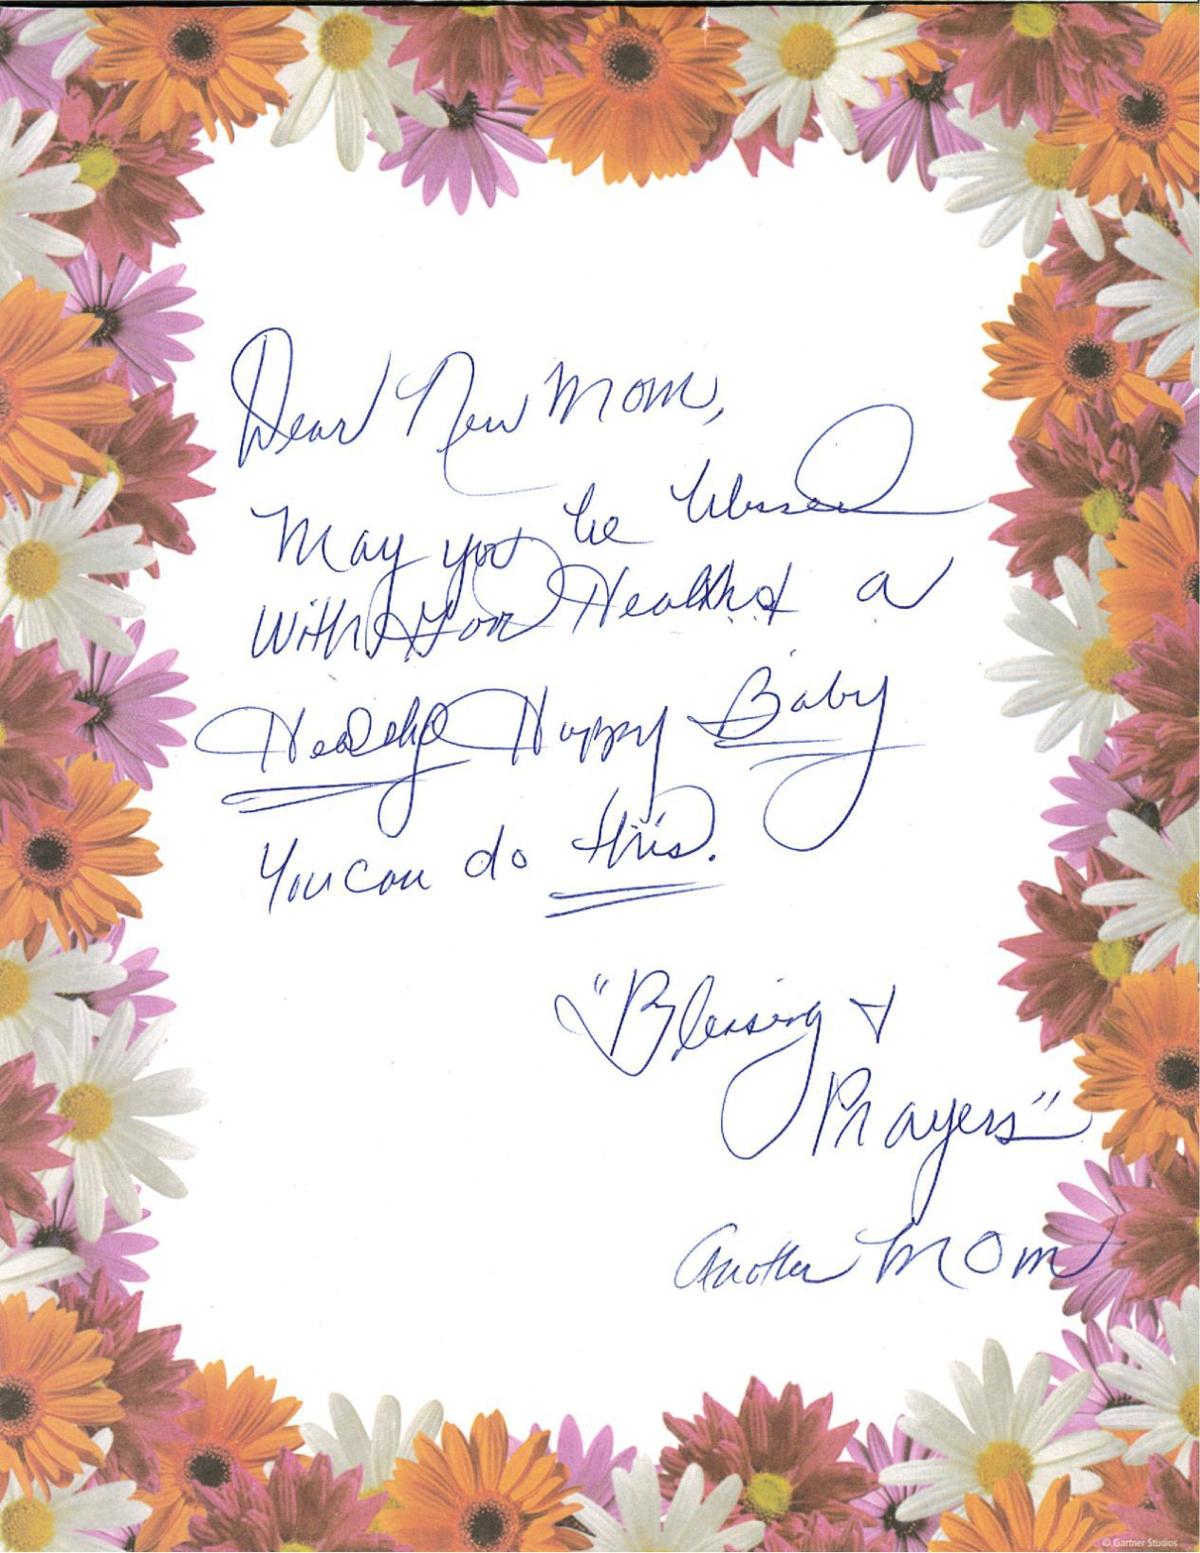 Dear New Mom,
May you be blessed
With Good Health & a
Healthy Happy Baby
You can do this.
"Blessing &
Prayers"
Another Mom
© Gartner Studios